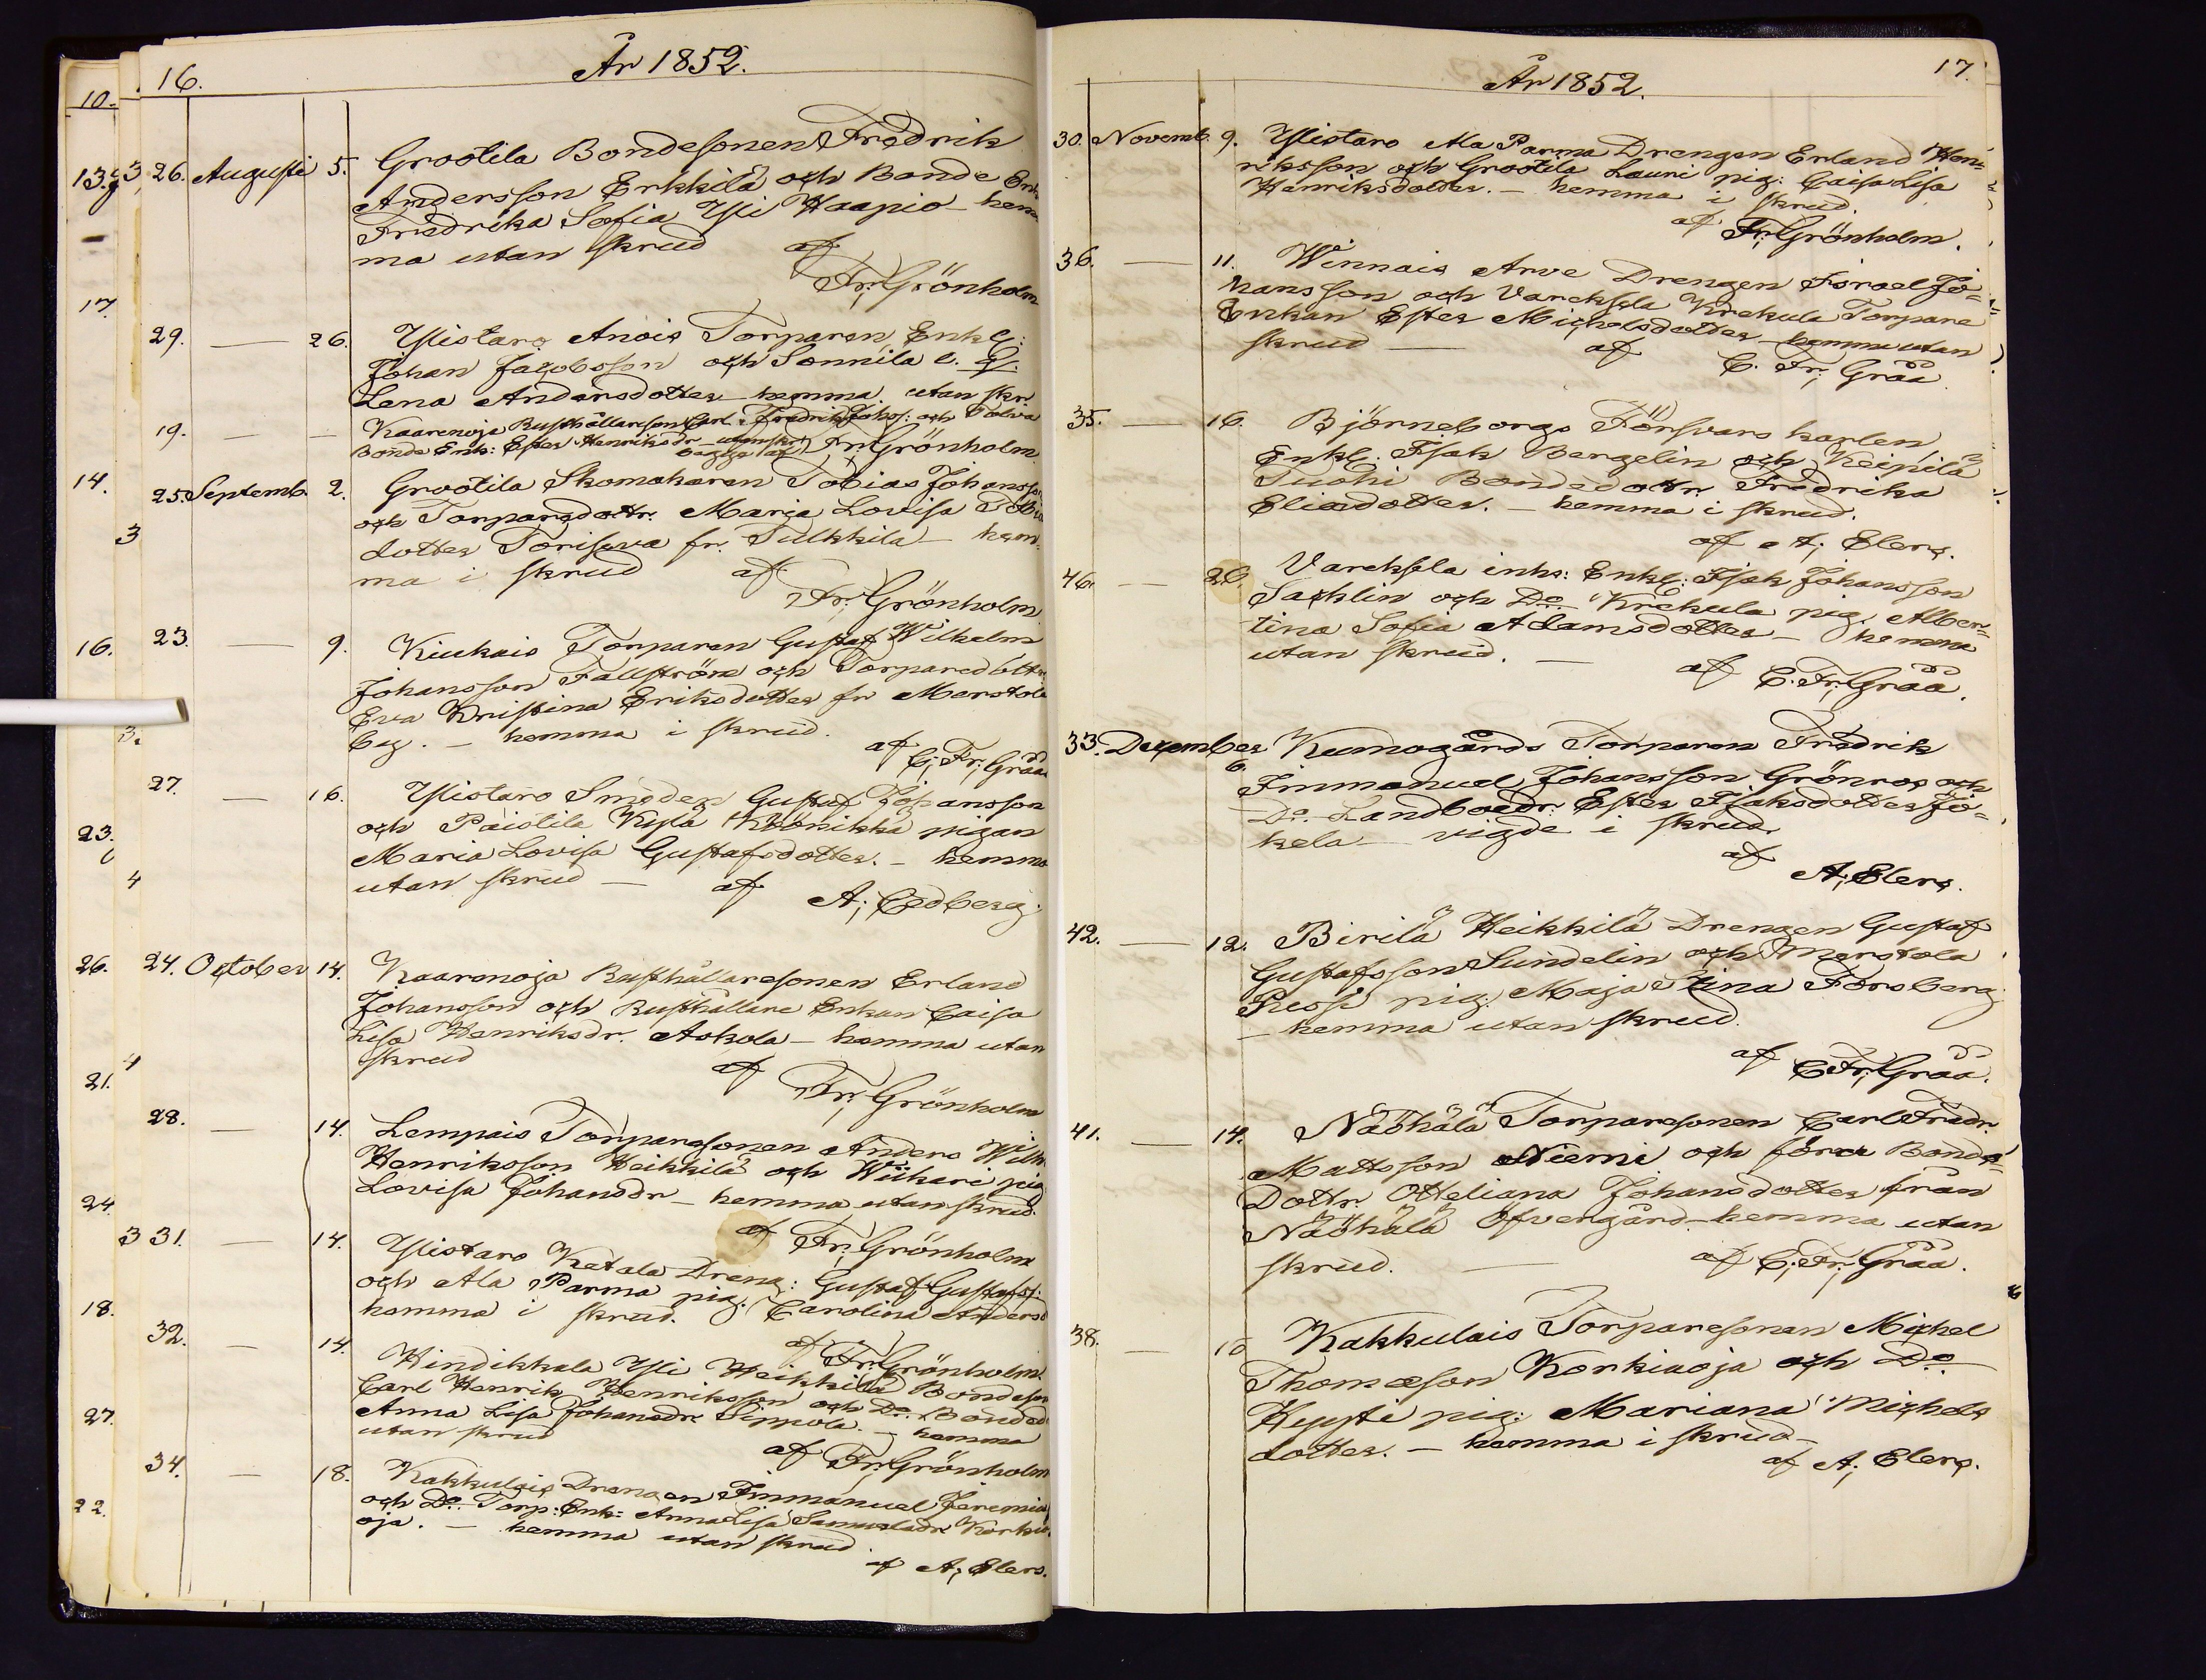 16. År 1852.
26. Augusti 5. Grootila Bondesonen Fredrik
Andersson Erkkilä och Bonde Enk
Fredrika Sofia Yli Haapio - hem
ma utan skrud af
Fr; Grönholm
29. — 26. Ylistaro Anois Torparen Enkl:
Johan Jacobsson och Sonnila e. Q.
Lena Andersdotter hemma utan skr.
19. — — Kaarenoja Rusthållareson Carl Fredrik Johss: och Tolva
Bonde Enk: Ester Henriksdr utan skr. begge af Fr; Grönholm
25. Septemb. 2. Grootila Skomakaren Tobias Johansson
och Torparedottr. Maria Lovisa Tobia
dotter Torisseva fr. Tulkkila - hem
ma i skrud af
Fr; Grönholm
23. — 9. Kiukais Torparen Gustaf Wilhelm
Johansson Fallström och Torparedottr
Eva Kristina Eriksdotter fr Merstola
By. - hemma i skrud.
af C; Fr; Gråå
27. — 16. Ylistaro Smeden Gustaf Johansson
och Paistila Kylä Köönikkä pigan
Maria Lovisa Gustafsdotter. - hemma
utan skrud — af A; Cedberg.
24. October 14. Kaarenoja Rusthållaresonen Erland
Johansson och Rusthållare Enkan Caisa
Lisa Henriksdr. Askola - hemma utan
skrud af
Fr; Grönholm
28. — 14. Lempais Torparesonen Anders Wilh.
Henriksson Heikkilä och Wiikari pig
Lovisa Johansdr - hemma utan skrud.
af Fr; Grönholm
31. — 14. Ylistaro Ketala Dreng: Gustaf Gustafss:
och Ala Parma pig: Carolina Andersd
hemma i skrud.
af Fr; Grönholm
32. — 14. Hindikkala Yli Heikkilä Bondeson
Carl Henrik Henriksson och Do. Bonded
Anna Lisa Johansdr Sippola. - hemma
utan skrud
af Fr; Grönholm
34. — 18. Kakkulais Drengen Immanuel Jeremia
och Do. Torp: Enk: Anna Lisa Samuelsdr Korkia
oja. - hemma utan skrud.
af A; Elers.
År 1852. 17.
30. Novemb. 9. Ylistaro Ala Parma Drengen Erland Hen=
riksson och Grootila Lauri pig: Caisa Lisa
Henriksdotter. - hemma i skrud.
af Fr; Grönholm.
36. — 11. Winnais Arve Drengen Israel Jo=
hansson och Vareksela Krekula Torpare
Enkan Ester Michelsdotter - hemma utan
skrud — af C. Fr; Gråå
35. — 16. Björneborgs Försvars karlen,
Enkl. Isak Bergelin och Keipilä
Tuohi Bondedottr. Fredrika
Eliædotter. - hemma i skrud.
af A; Elers.
46. — 26. Vareksela inhs: Enkl: Isak Johansson
Sachlin och Do Krekula pig. Alber=
tina Sofia Adamsdotter - hemma
utan skrud. — af C. Fr; Gråå.
33. December 6. Kumogårds Torparen Fredrik
Immanuel Johansson Grönros och
Do Landboedr. Ester Isaksdotter Jo=
kela - vigde i skrud.
af A; Elers.
42. — 12. Birilä Heikkilä Drengen Gustaf
Gustafsson Sundelin och Merstola
Sessi pig. Maja Stina Forsberg
- hemma utan skrud.
af C Fr; Gråå.
41. — 14. Näöhälä Torparesonen Carl Fredr.
Mattsson Niemi och förra Bonde=
Dottr. Otteliana Johansdotter från
Näöhälä Öfvergård - hemma utan
skrud. — af C; Fr; Gråå.
38. — 16 Kakkulais Torparesonen Michel
Thomæson Korkiaoja och Do
Kyysti pig: Mariana Michels
dotter. - hemma i skrud -
af A; Elers.